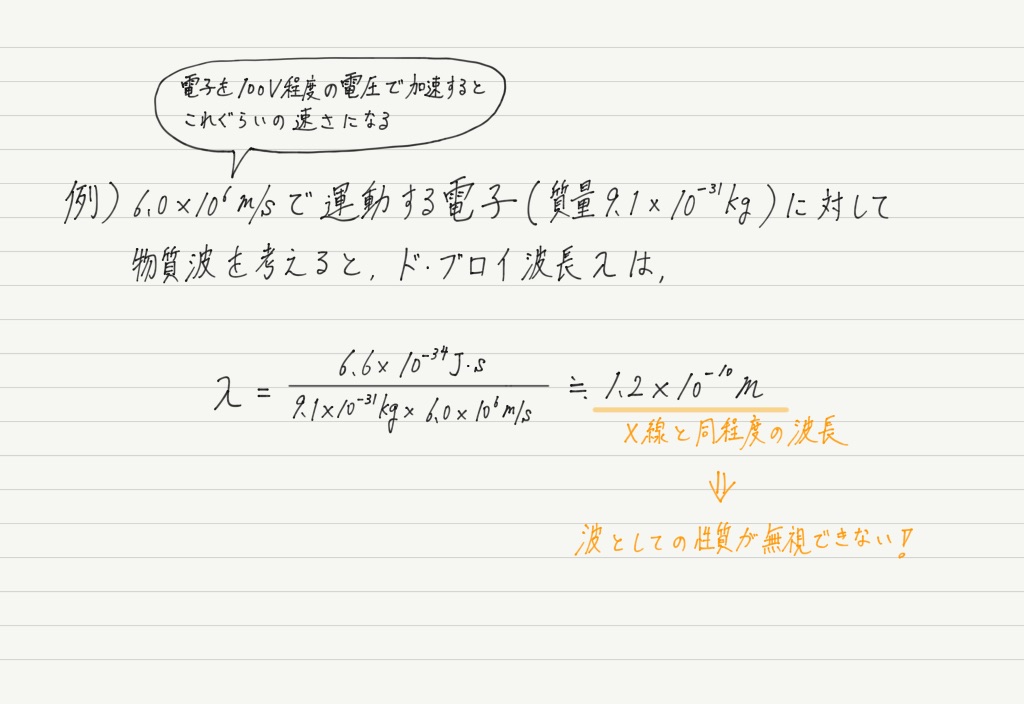 電子を100V程度の電圧で加速すると
これぐらいの速さになる
例) 6.0×10⁶m/sで運動する電子(質量9.1×10⁻³¹kg)に対して
物質波を考えると, ド・ブロイ波長λは,
λ = 6.6×10⁻³⁴J・s / 9.1×10⁻³¹kg×6.0×10⁶m/s ≒ 1.2×10⁻¹⁰m
X線と同程度の波長
⇓
波としての性質が無視できない!